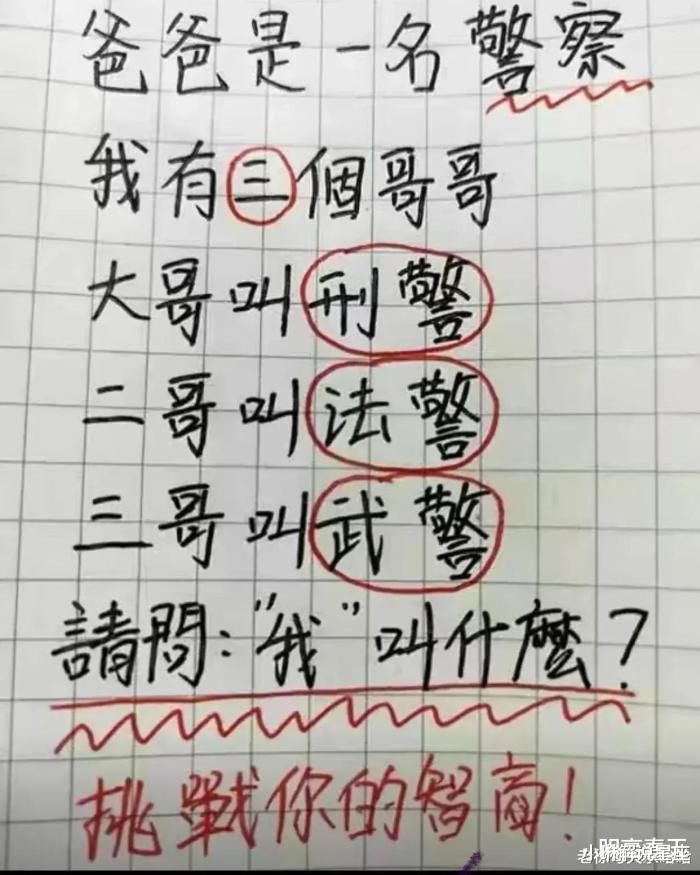 爸爸是一名警察
我有三個哥哥
大哥叫刑警
二哥叫法警
三哥叫武警
請問："我"叫什麼？
挑戰你的智商！